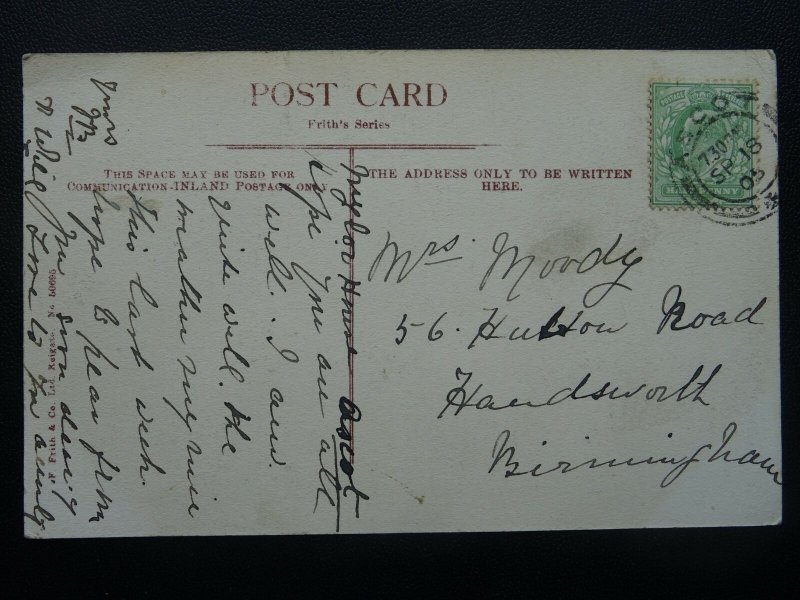 POST CARD
Frith's Series
THIS SPACE MAY BE USED FOR
COMMUNICATION-INLAND POSTAGE ONLY
THE ADDRESS ONLY TO BE WRITTEN
HERE.
POSTAGE
HALF PENNY
ASCOT
7.30 PM
SP 18
05
Mrs. Moody
56. Hutton Road
Handsworth
Birmingham
House Ascot
Hope you are all
well. I am
quite well. the
weather very nice
this last week.
hope to hear from
you soon dearly
Love to
& Will
Yours
F. Frith & Co. Ltd. Reigate. No. 50695